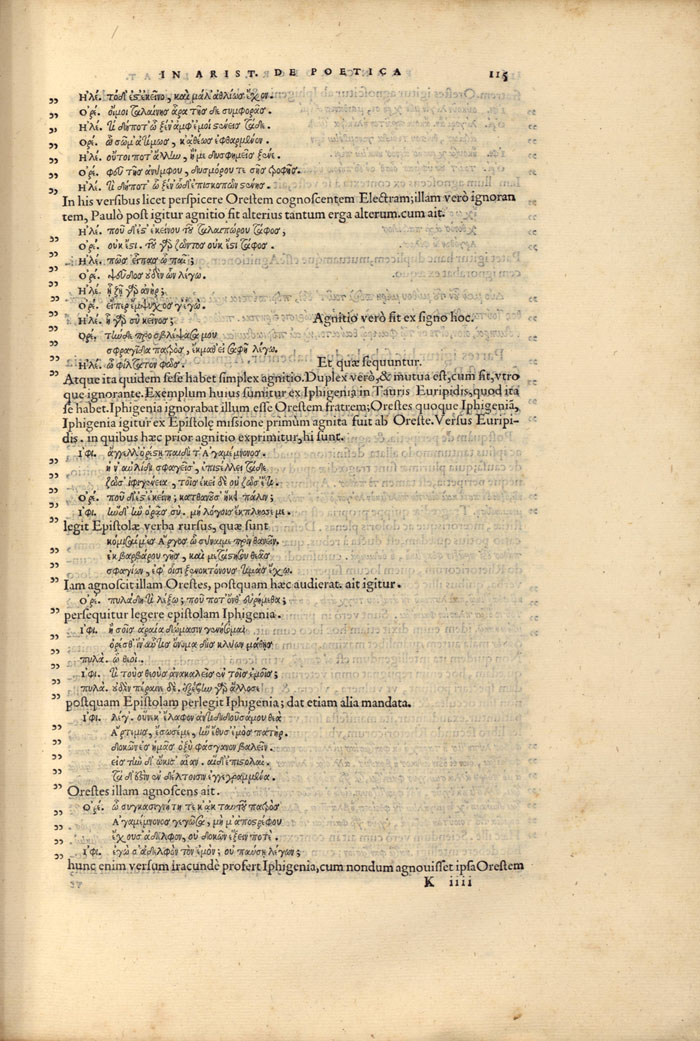 IN ARIST. DE POETICA 115
Ηλέ. τόδ' ἔστ' ἐκεῖνο, καὶ μάλ' ἀθλίως ἔχον.
Ορέ. οἴμοι ταλαίνης ἆρα τῆσδε συμφορᾶς.
Ηλέ. τί δή ποτ' ὦ ξέν' ἀμφ' ἐμοὶ στένεις τάδε.
Ορέ. ὦ σῶμ' ἀτίμως, κἀθέως ἐφθαρμένον.
Ηλέ. οὔτοι ποτ' ἄλλην, ἢ 'με δυσφημεῖς ξένε.
Ορέ. φεῦ τῆς ἀνύμφου, δυσμόρου τε σῆς τροφῆς.
Ηλέ. τί δή ποτ' ὦ ξέν' ὧδ' ἐπισκοπῶν στένεις.
In his versibus licet perspicere Orestem cognoscentem Electram; illam verò ignoran
tem, Paulò post igitur agnitio fit alterius tantum erga alterum. cum ait.
Ηλέ. ποῦ δ' ἔστ' ἐκείνου τοῦ ταλαιπώρου τάφος,
Ορέ. οὐκ ἔστι. τοῦ γὰρ ζῶντος οὐκ ἔστι τάφος.
Ηλέ. πῶς εἶπας ὦ παῖ;
Ορέ. ψεῦδος οὐδὲν ὧν λέγω.
Ηλέ. ἦ ζῇ γὰρ ἀνήρ;
Ορέ. εἴπερ ἔμψυχος γ' ἐγώ.
Ηλέ. ἦ γὰρ σὺ κεῖνος; Agnitio verò fit ex signo hoc.
Ορέ. τήνδε προσβλέψασά μου
σφραγῖδα πατρός, ἔκμαθ' εἰ σαφῆ λέγω.
Ηλέ. ὦ φίλτατον φῶς. Et quæ sequuntur.
Atque ita quidem sese habet simplex agnitio. Duplex verò, & mutua est, cum fit, vtro
que ignorante. Exemplum huius sumitur ex Iphigenia in Tauris Euripidis, quod ita
se habet. Iphigenia ignorabat illum esse Orestem fratrem; Orestes quoque Iphigeniā,
Iphigenia igitur ex Epistolę missione primùm agnita fuit ab Oreste. Versus Euripi-
dis. in quibus hæc prior agnitio exprimitur, hi sunt.
Ιφι. ἄγγελλ' ὀρέστῃ παιδὶ τ' Αγαμέμνονος.
ἡ 'ν αὐλίδι σφαγεῖσ', ἐπιστέλλει τάδε
ζῶσ' ἰφιγένεια, τοῖς ἐκεῖ δὲ οὐ ζῶσ' ἔτι.
Ορέ. ποῦ δ' ἔστ' ἐκείνη; κατθανοῦσ' ἥκει πάλιν;
Ιφι. ἥδ' ἣν ὁρᾷς σύ. μὴ λόγοις ἔκπλησσέ με.
legit Epistolæ verba rursus, quæ sunt
κόμισαί μ' ἐς Αργος ὦ σύναιμε πρὶν θανεῖν.
ἐκ βαρβάρου γῆς, καὶ μετάστησον θεᾶς
σφαγίων, ἐφ' οἷσι ξενοκτόνους τιμὰς ἔχω.
Iam agnoscit illam Orestes, postquam hæc audierat. ait igitur.
Ορέ. πυλάδη τί λέξω; ποῦ ποτ' ὄνθ' εὑρήμεθα;
persequitur legere epistolam Iphigenia.
Ιφι. ἢ σοῖς ἀραία δώμασιν γενήσομαι
ὀρέσθ' ἵν' αὖθις ὄνομα δὶς κλύων μάθῃς
πυλά. ὦ θεοί.
Ιφι. τί τοὺς θεοὺς ἀνακαλεῖς ἐν τοῖς ἐμοῖς;
πυλά. οὐδὲν πέραινε δέ. ἐξέβην γὰρ ἄλλοσε
postquam Epistolam perlegit Iphigenia; dat etiam alia mandata.
Ιφι. λέγ'. οὕνεκ' ἔλαφον ἀντιδοῦσά μου θεὰ
Αρτεμις, ἔσωσέ με, ἣν ἔθυσ' ἐμὸς πατὴρ.
δοκῶν ἐς ἡμᾶς ὀξὺ φάσγανον βαλεῖν.
εἰς τήνδε δ' ᾤκισ' αἶαν. αἵδ' ἐπιστολαὶ.
τάδ' ἐστὶν ἐν δέλτοισιν ἐγγεγραμμένα.
Orestes illam agnoscens ait.
Ορέ. ὦ συγκασιγνήτη τε κἀκ ταυτοῦ πατρὸς
Αγαμέμνονος γεγῶσα, μή μ' ἀποστρέφου
ἔχουσ' ἀδελφὸν, οὐ δοκῶν ἕξειν ποτέ.
Ιφι. ἐγώ σ' ἀδελφὸν τὸν ἐμόν; οὐ παύσῃ λέγων;
hunc enim versum iracundè profert Iphigenia, cum nondum agnouisset ipsa Orestem
K iiii